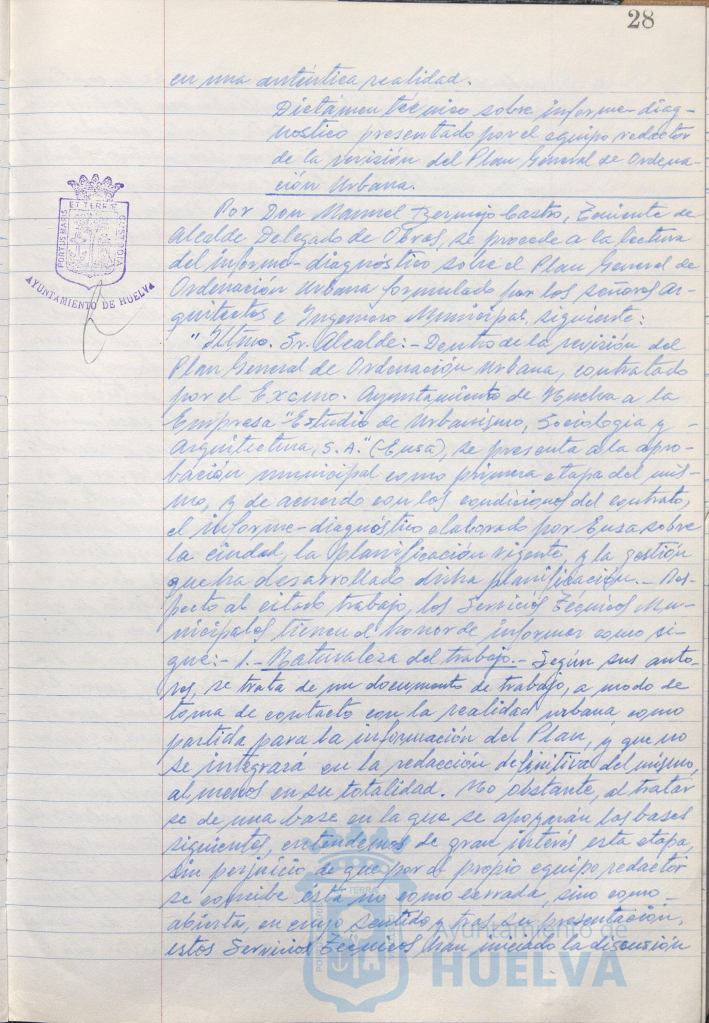 28
en una auténtica realidad.
Dictámen técnico sobre informe-diag-
nóstico presentado por el equipo redactor
de la revisión del Plan General de Ordena-
ción Urbana.
Por Don Manuel Bermejo Castro, Teniente de
Alcalde Delegado de Obras, se procede a la lectura
del informe-diagnóstico sobre el Plan General de
Ordenación Urbana formulado por los señores Ar-
quitectos e Ingeniero Municipal siguiente:
"Iltmo. Sr. Alcalde:- Dentro de la revisión del
Plan General de Ordenación Urbana, contratado
por el Excmo. Ayuntamiento de Huelva a la
Empresa "Estudio de Urbanismo, Sociología y
Arquitectura, S.A." (Eusa), se presenta a la apro-
bación municipal como primera etapa del mis-
mo, y de acuerdo con las condiciones del contrato,
el informe-diagnóstico elaborado por Eusa sobre
la ciudad, la planificación vigente, y la gestión
que ha desarrollado dicha planificación.- Res-
pecto al citado trabajo, los Servicios Técnicos Mu-
nicipales tienen el honor de informar como si-
gue:- 1.- Naturaleza del trabajo.- Según sus auto-
res, se trata de un documento de trabajo, a modo de
toma de contacto con la realidad urbana como
partida para la información del Plan, y que no
se integrará en la redacción definitiva del mismo,
al menos en su totalidad. No obstante, al tratar
se de una base en la que se apoyarán las bases
siguientes, entendemos de gran interés esta etapa,
sin perjuicio de que por el propio equipo redactor
se concibe ésta no como cerrada, sino como
abierta, en cuyo sentido y tras su presentación,
estos Servicios Técnicos han iniciado la discusión
PORTUS MARIS ET TERRAE CUSTODIA
AYUNTAMIENTO DE HUELVA
Ayuntamiento de
HUELVA